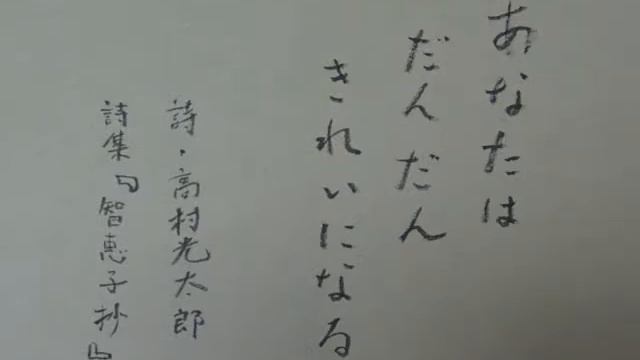 あなたは
だんだん
きれいになる
詩・高村光太郎
詩集『智恵子抄』